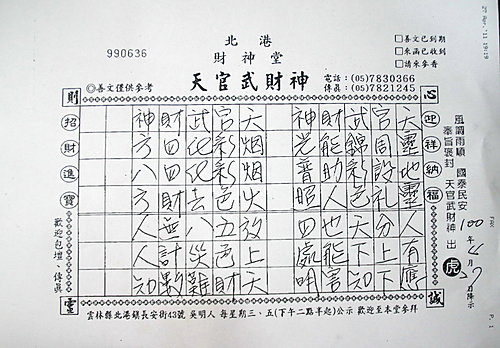 27 Apr. '11 19:19
北港
財神堂
天官武財神
990636
□善文已到期
□來函已收到
□請來參香
電話：(05)7830366
傳真：(05)7821245
◎善文僅供參考
則 心
迎祥納福
誠
風調雨順 國泰民安
奉旨褒封 天官武財神 出 虎
100年
日降示
天靈地靈人有應
官周設礼分上下
武錦彩色天下知
財能助人也能害
神光普照四處明
天烟烟火放上天
官彩彩色五色財
武化化去八災難
財四四財無計數
神方八方人人知
招財進寶
靈
歡迎包壇、傳真
雲林縣北港鎮長安街43號 吳明人 每星期三、五(下午二點半起)公示 歡迎至本堂參拜
P. 1